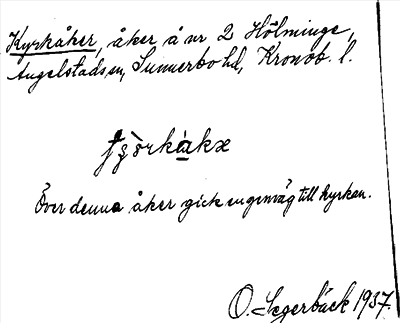 Kyrkåker, åker å nr 2 Hölminge,
Angelstads sn, Sunnerbo hd, Kronob. l.
Över denna åker gick en genväg till kyrkan.
O. Segerbäck 1937.